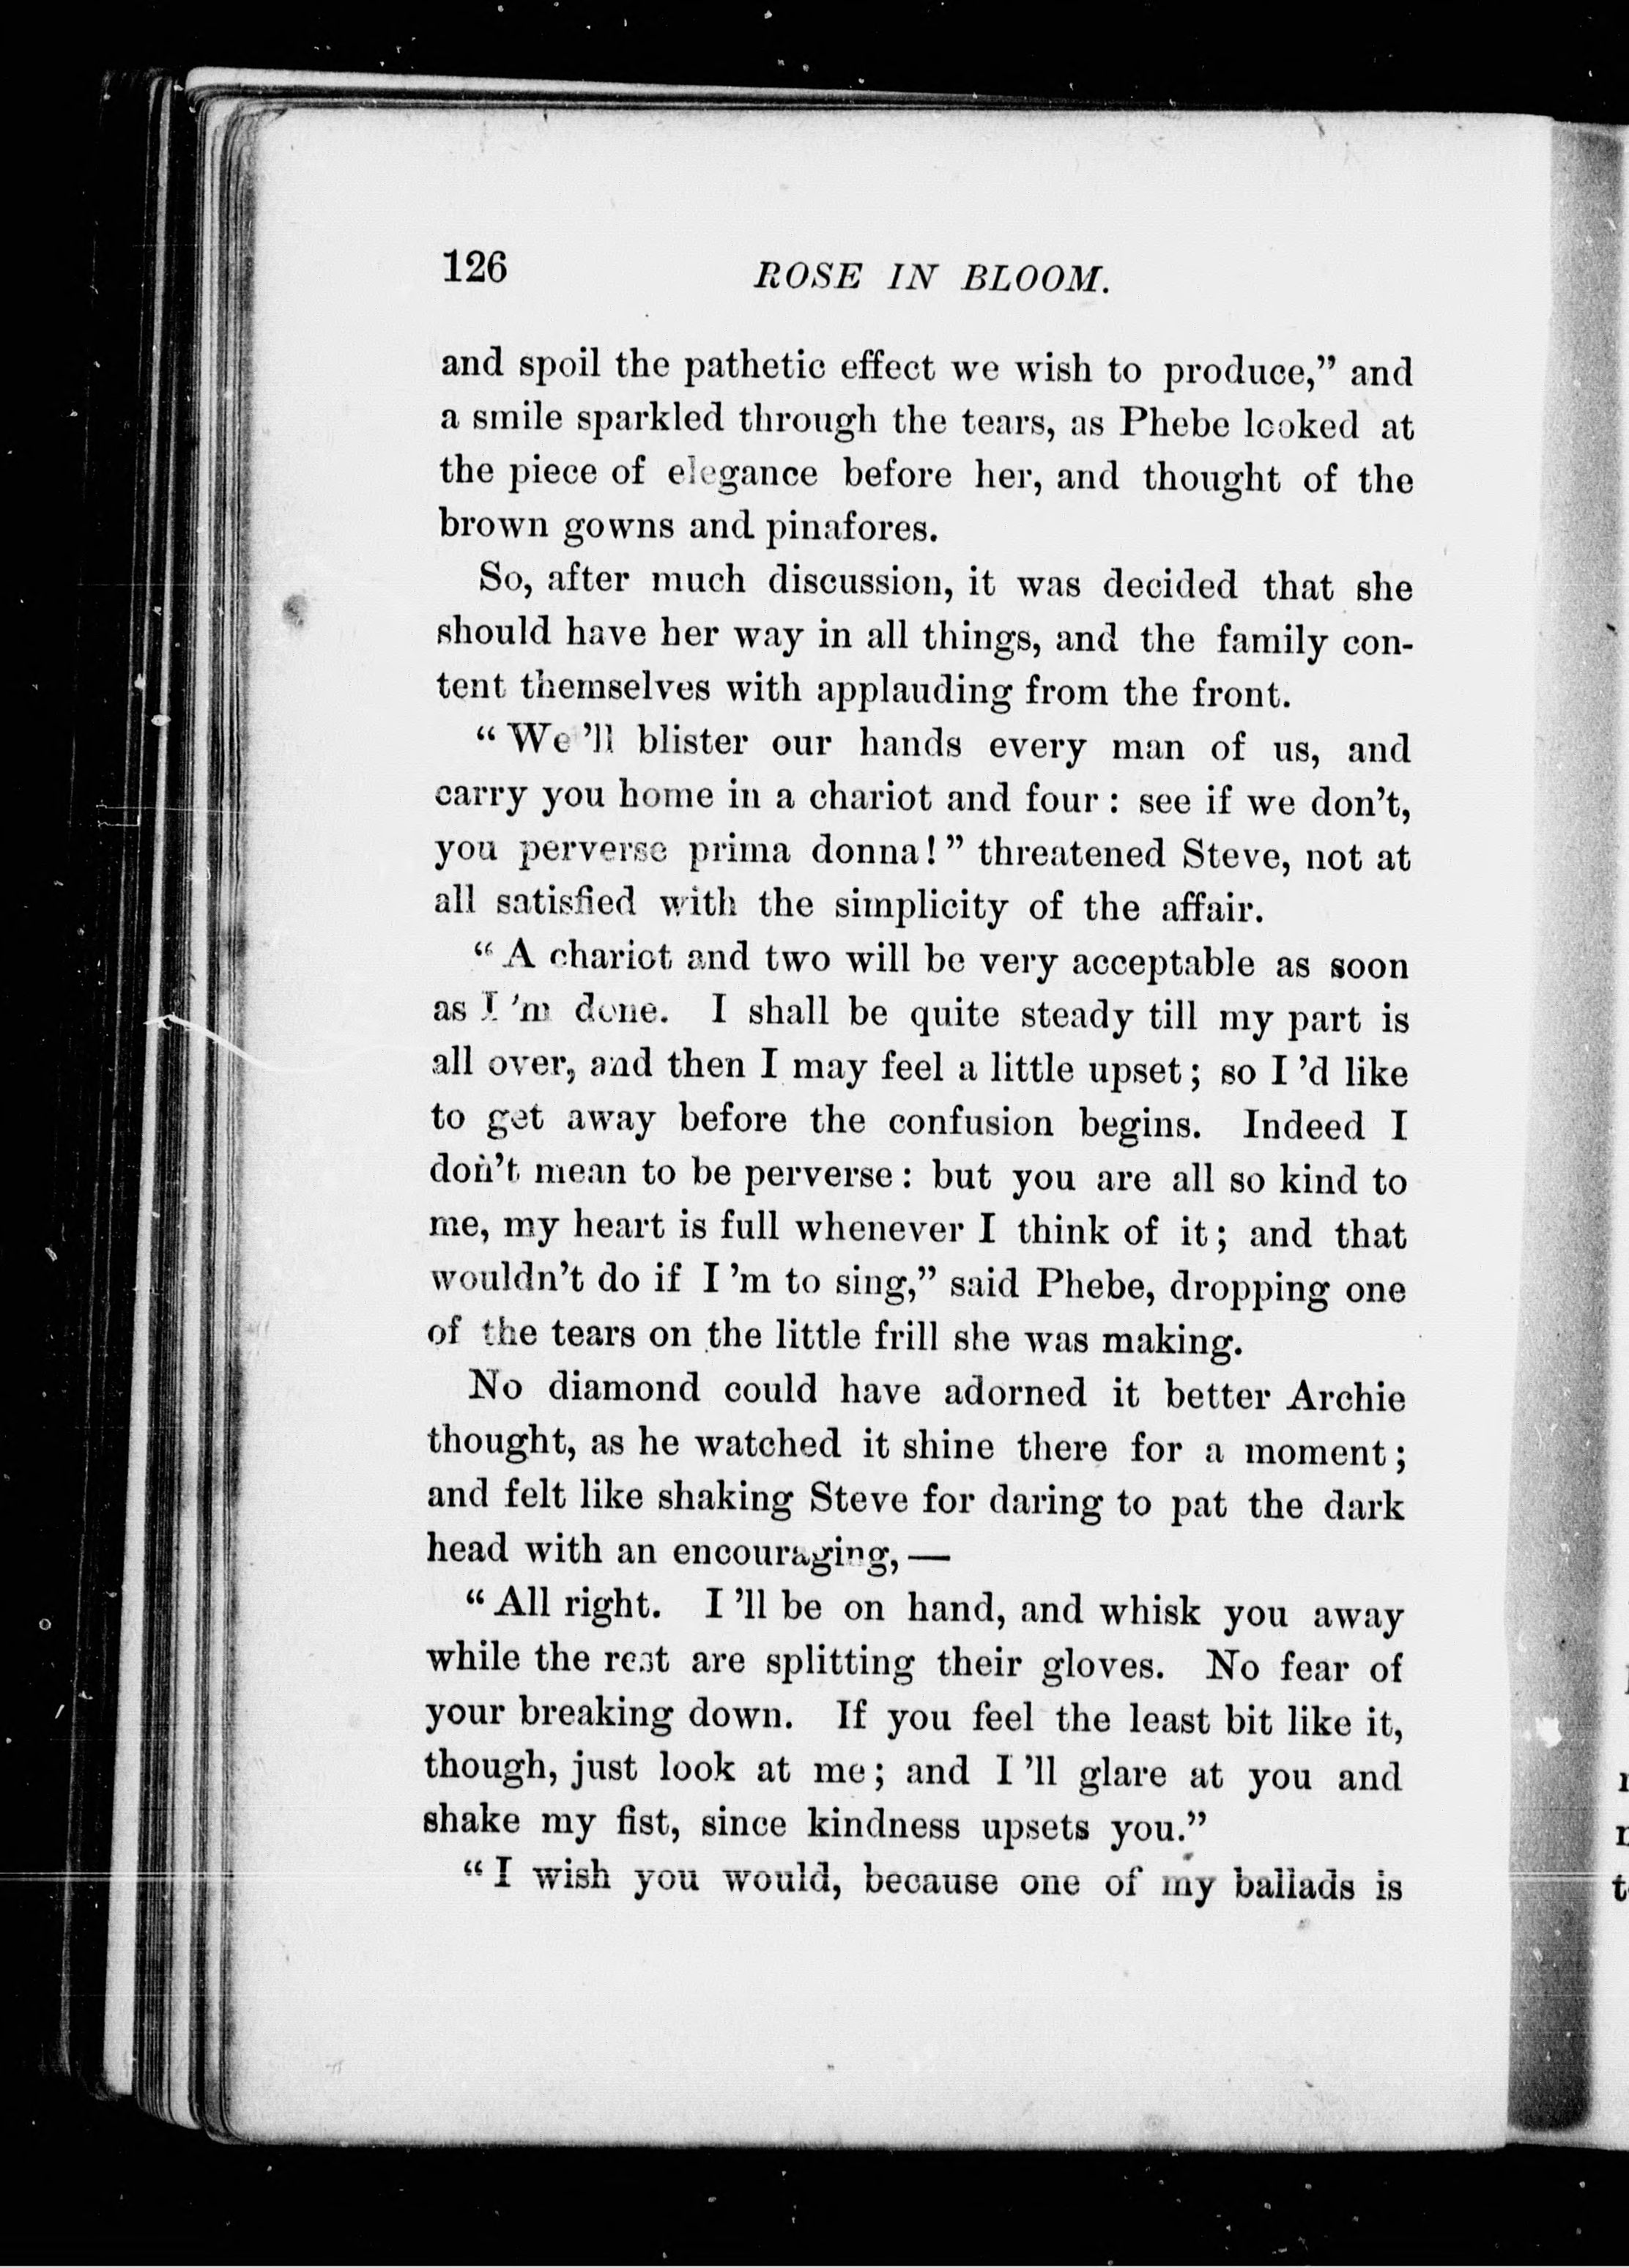 126 ROSE IN BLOOM.
and spoil the pathetic effect we wish to produce,” and
a smile sparkled through the tears, as Phebe looked at
the piece of elegance before her, and thought of the
brown gowns and pinafores.
So, after much discussion, it was decided that she
should have her way in all things, and the family con-
tent themselves with applauding from the front.
“We ’ll blister our hands every man of us, and
carry you home in a chariot and four : see if we don’t,
you perverse prima donna!” threatened Steve, not at
all satisfied with the simplicity of the affair.
“A chariot and two will be very acceptable as soon
as I ’m done. I shall be quite steady till my part is
all over, and then I may feel a little upset; so I ’d like
to get away before the confusion begins. Indeed I
don’t mean to be perverse: but you are all so kind to
me, my heart is full whenever I think of it; and that
wouldn’t do if I ’m to sing,” said Phebe, dropping one
of the tears on the little frill she was making.
No diamond could have adorned it better Archie
thought, as he watched it shine there for a moment;
and felt like shaking Steve for daring to pat the dark
head with an encouraging, —
“All right. I ’ll be on hand, and whisk you away
while the rest are splitting their gloves. No fear of
your breaking down. If you feel the least bit like it,
though, just look at me; and I ’ll glare at you and
shake my fist, since kindness upsets you.”
“I wish you would, because one of my ballads is